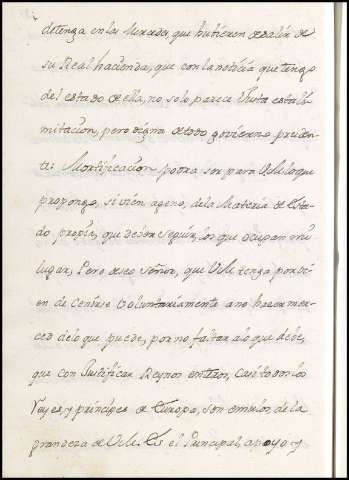 detenga en las Mercedes, que hubieren de salir de
su Real hacienda, que con la noticia que tengo
del estado de ella, no solo parece Justa esta li-
mitacion, pero digna de todo govierno pruden-
te: Mortificacion podra ser para VM lo que
propongo, si vien ageno, de la Materia de Esta-
do propia, que deven seguir, los que ocupan mi
lugar, Pero deseo Señor, que VM tenga por vi-
en de ceñirse voluntariamente a no hacer mer-
ced de lo que puede, por no faltar a lo que debe,
que con Justificar Reynos enteros, casi todos los
Reyes, y principes de Europa, son emulos de la
grandeza de VM. Es el Principal, apoyo y